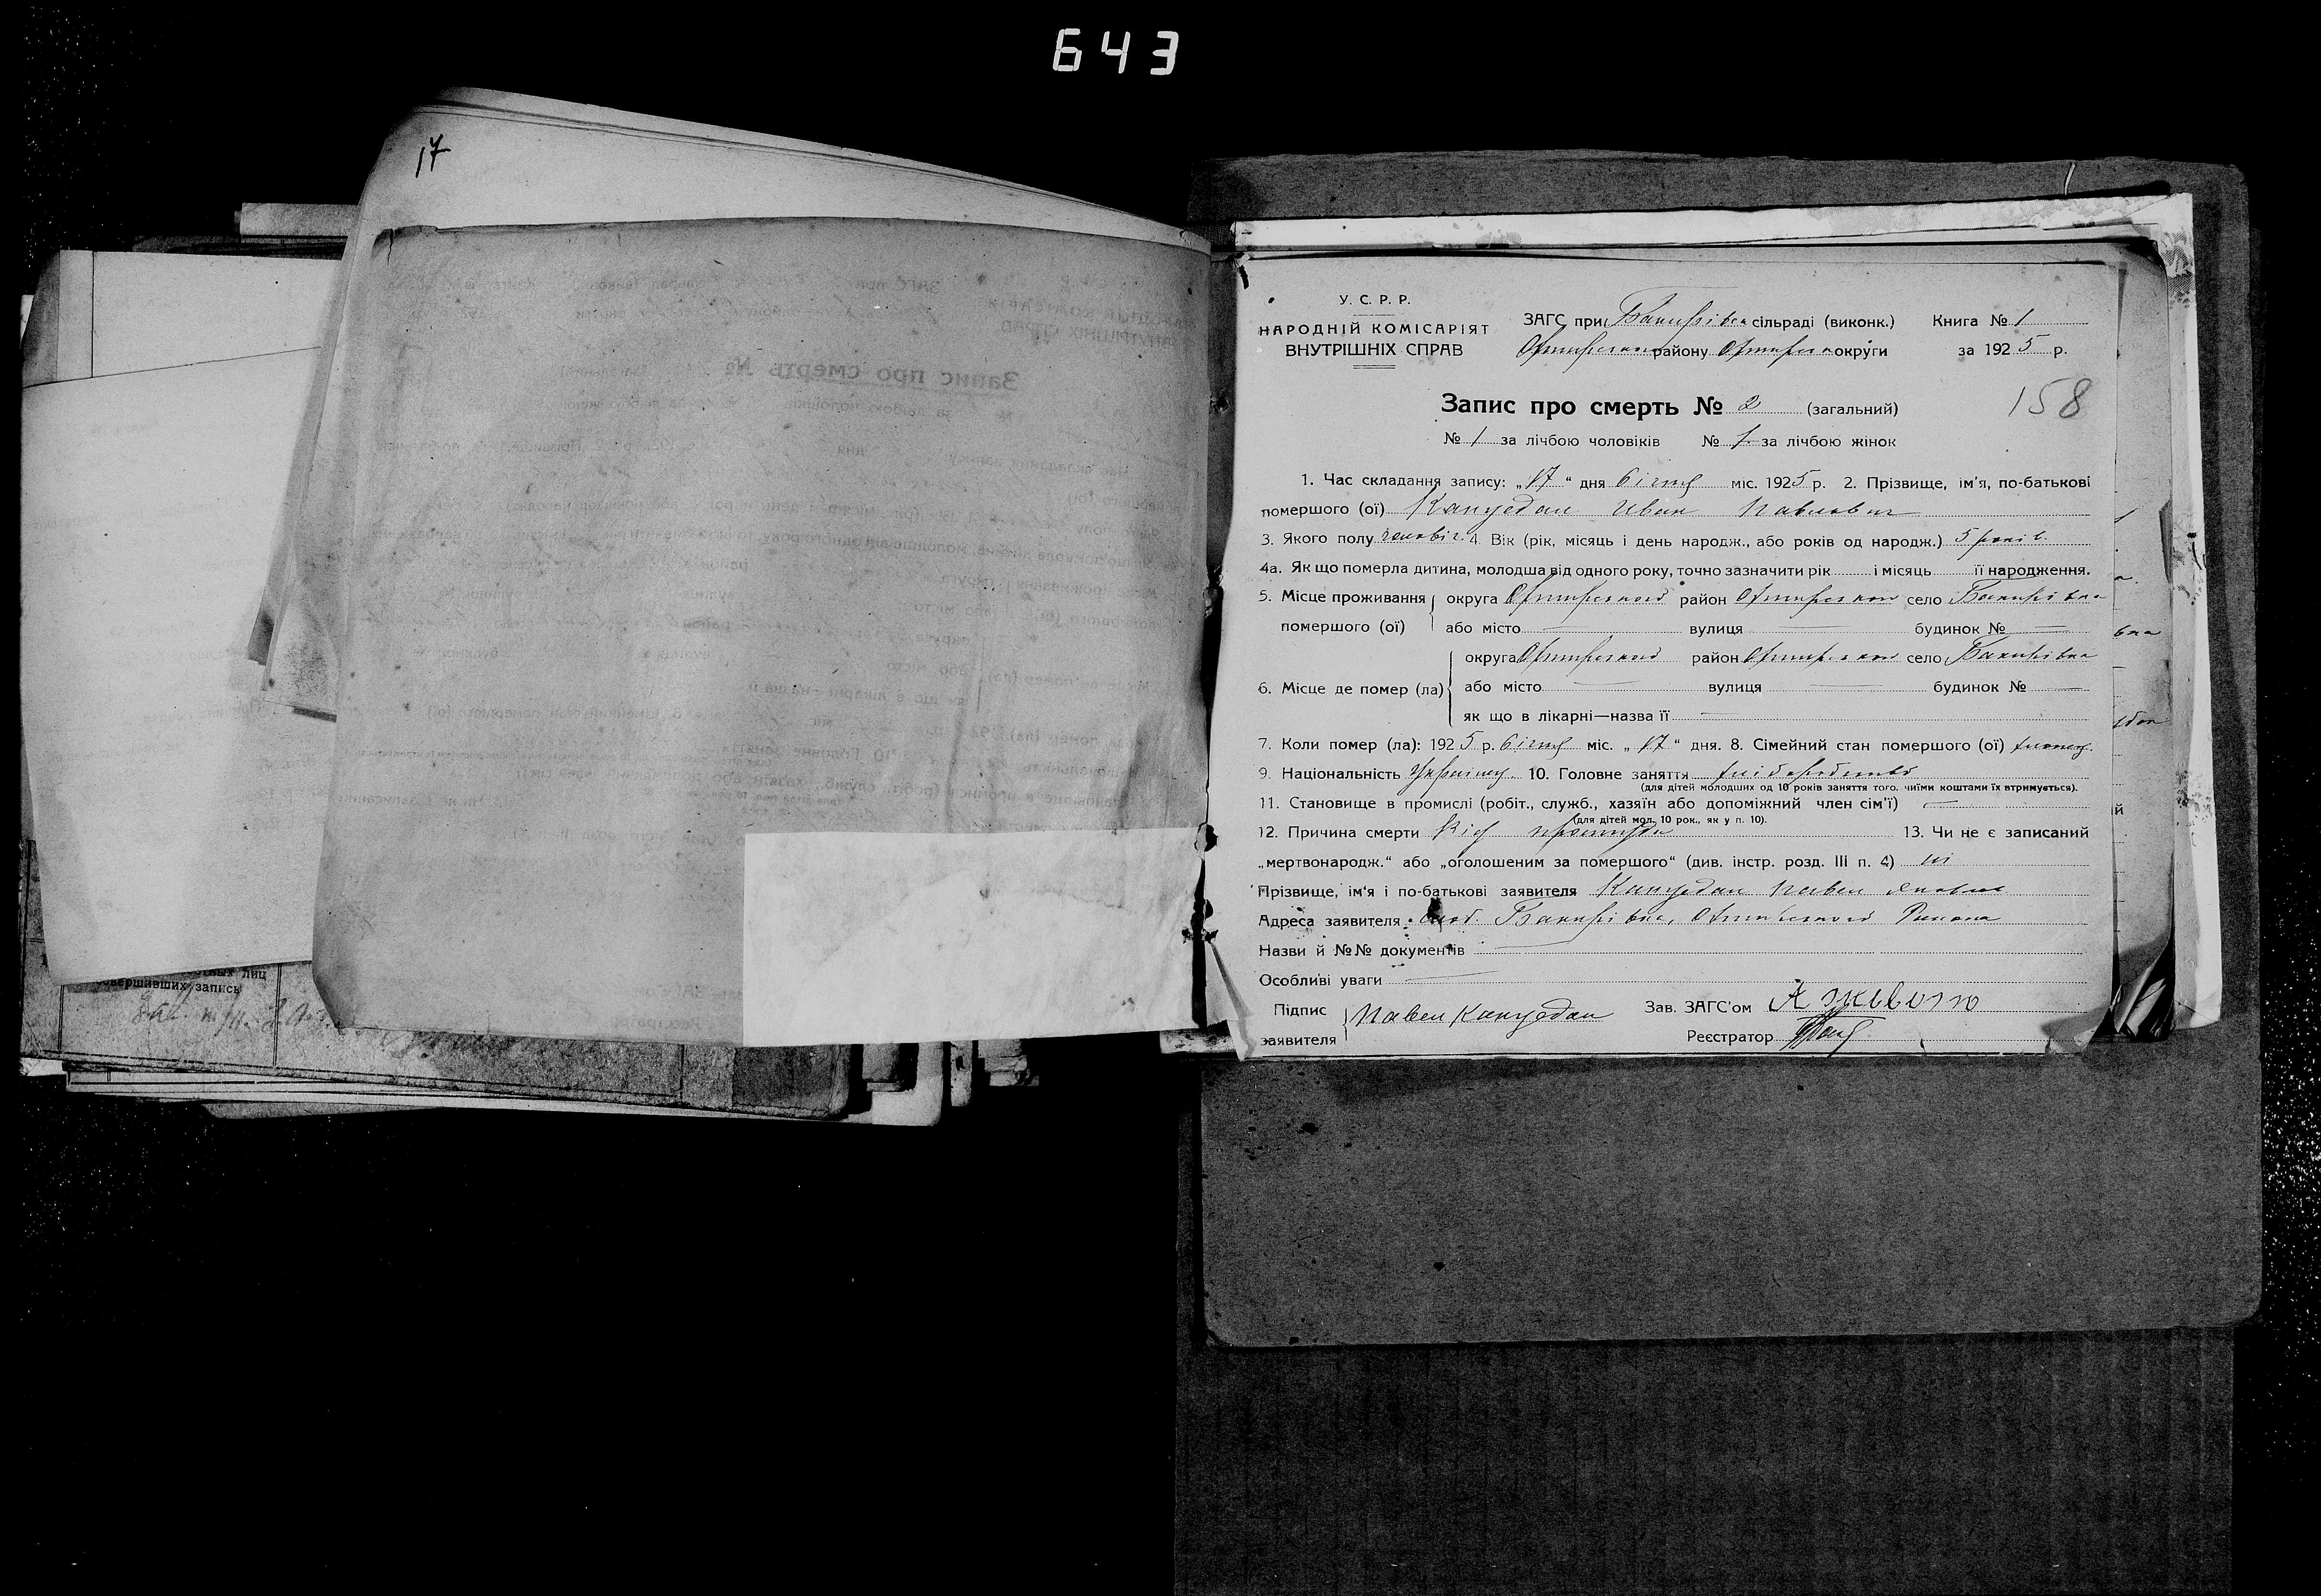 643
17
У. С. Р. Р.
НАРОДНІЙ КОМІСАРІЯТ
ВНУТРІШНІХ СПРАВ
ЗАГС при Бакирівск сільраді (виконк.) Книга № 1
району округи за 1925 р.
Запис про смерть № 2 (загальний)
158
№ 1 за лічбою чоловіків № 1 за лічбою жінок
1. Час складання запису: „17“ дня Січня міс. 1925 р. 2. Прізвище, ім'я, по-батькові
помершого (ої) Капуедан Иван Павлович
3. Якого полу чоловіч. 4. Вік (рік, місяць і день народж., або років од народж.) 5 років.
4а. Як що померла дитина, молодша від одного року, точно зазначити рік і місяць її народження.
5. Місце проживання округа Охтирської район Охтирский село Бакирівка
помершого (ої) або місто — вулиця — будинок № —
округа Охтирської район Охтирский село Бакирівка
6. Місце де помер (ла) або місто — вулиця — будинок № —
як що в лікарні—назва її —
7. Коли помер (ла): 1925 р. Січня міс. „17“ дня. 8. Сімейний стан помершого (ої)
9. Національність Українец. 10. Головне заняття хліборобство
(для дітей молодших од 10 років заняття того, чиїми коштами їх втримується).
11. Становище в промислі (робіт., служб., хазяїн або допоміжний член сім'ї) —
(для дітей мол. 10 рок., як у п. 10).
12. Причина смерти Від простуди 13. Чи не є записаний
„мертвонародж.“ або „оголошеним за помершого“ (див. інстр. розд. III п. 4) ні
Прізвище, ім'я і по-батькові заявителя Капуедан Павел Яковлев
Адреса заявителя слоб. Бакирівка, Охтирского Района
Назви й №№ документів —
Особливі уваги —
Підпис Павел Капуедан Зав. ЗАГС'ом
заявителя Реєстратор
совершивших запись